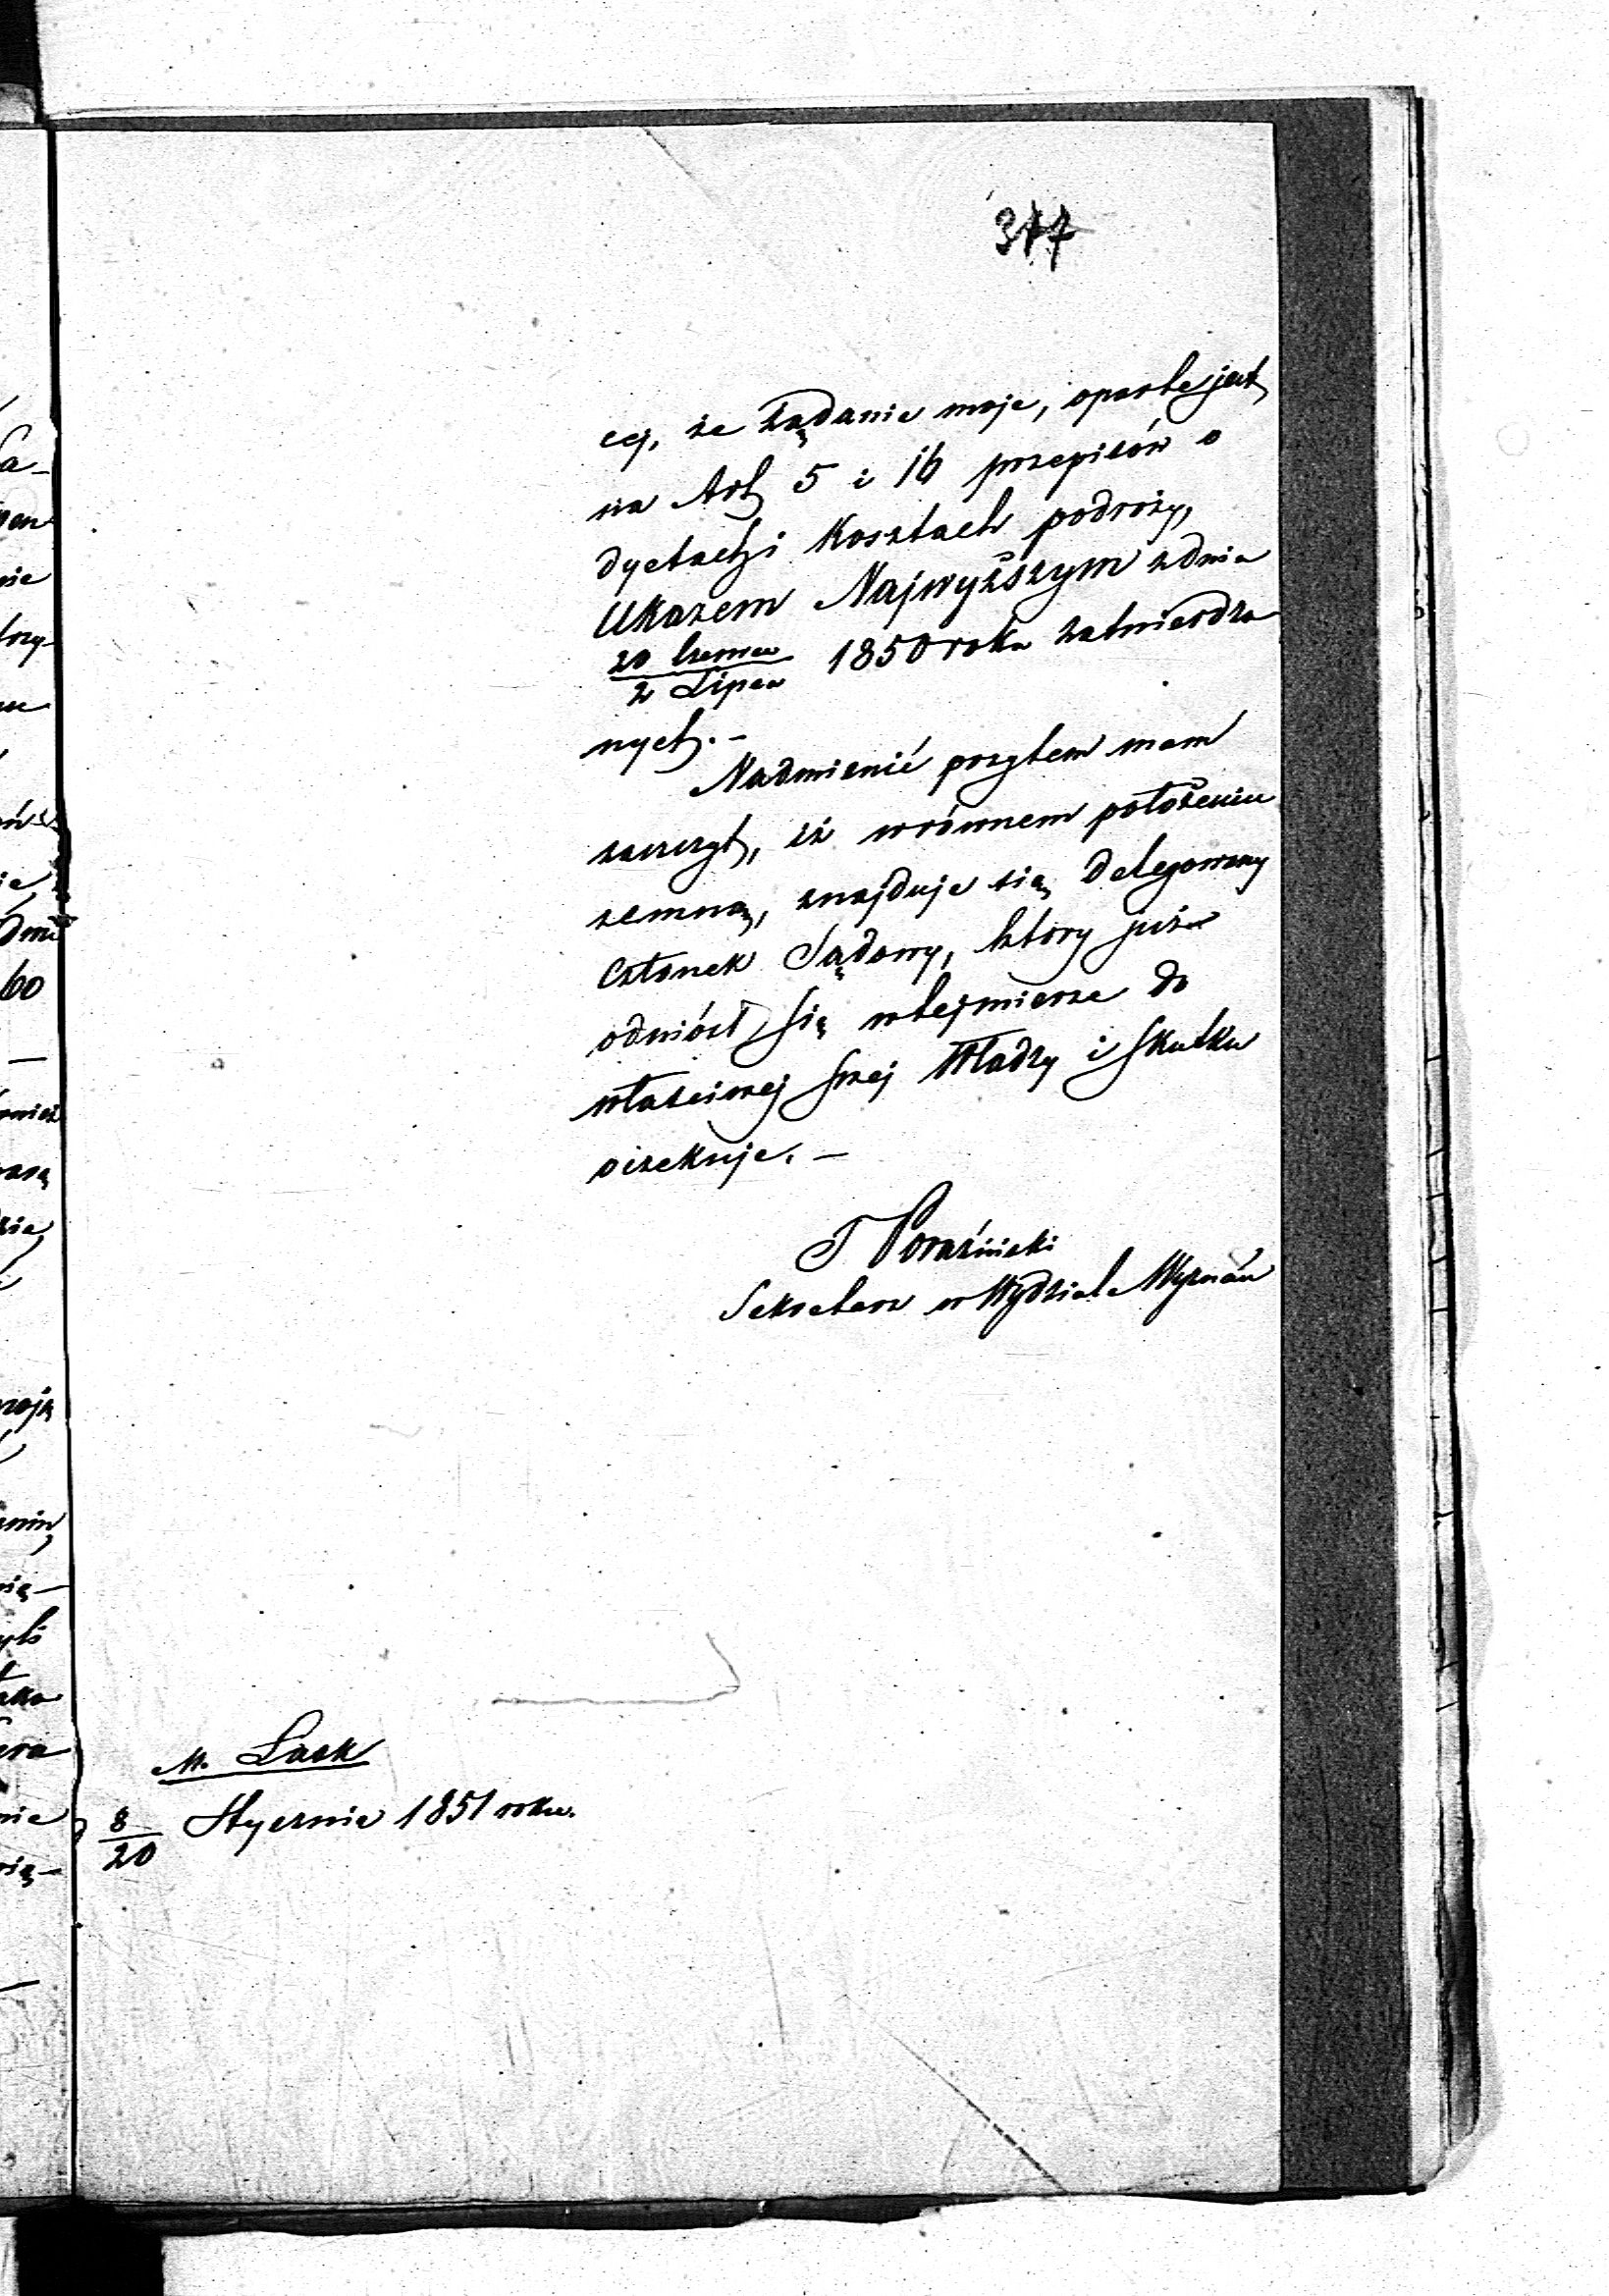 317
cej, że żądanie moje, oparte jest
na Art 5 i 16 przepisów o
dyetach i Kosztach podroży,
Ukazem Najwyższym z dnia
20 Czerwca / 2 Lipca 1850 roku zatwierdzo
nych. -
Nadmienić przytem mam
zaszczyt, iż w równem położeniu
zemną, znajduje się Delegowany
Członek Sądowy, ktory już
odniósł się w tej mierze do
właściwej swej Władzy i skutku
oczekuje. -
Sekretarz w Wydziale Wyznań
M. Łask
8/20 Stycznia 1851 roku.